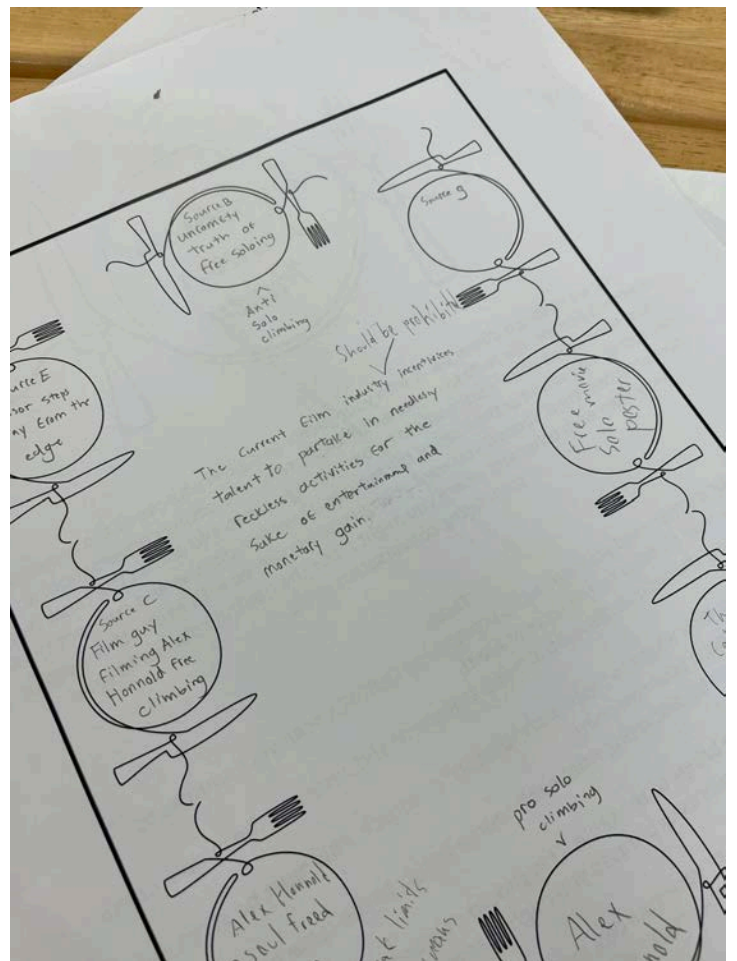 Source B
uncomfty
truth of
free soloing
^
Anti
solo
climbing
Source g
Should be prohibited
The current film industry incentivices
talent to partake in needlessly
reckless activities for the
sake of entertainment and
monetary gain.
Free movie
Solo poster
urce E
sor steps
ay from the
edge
Source C
Film guy
filming Alex
Honnold free
climbing
Th
pro solo
climbing
v
Alex
nold
Alex Honnold
soul freed
limits